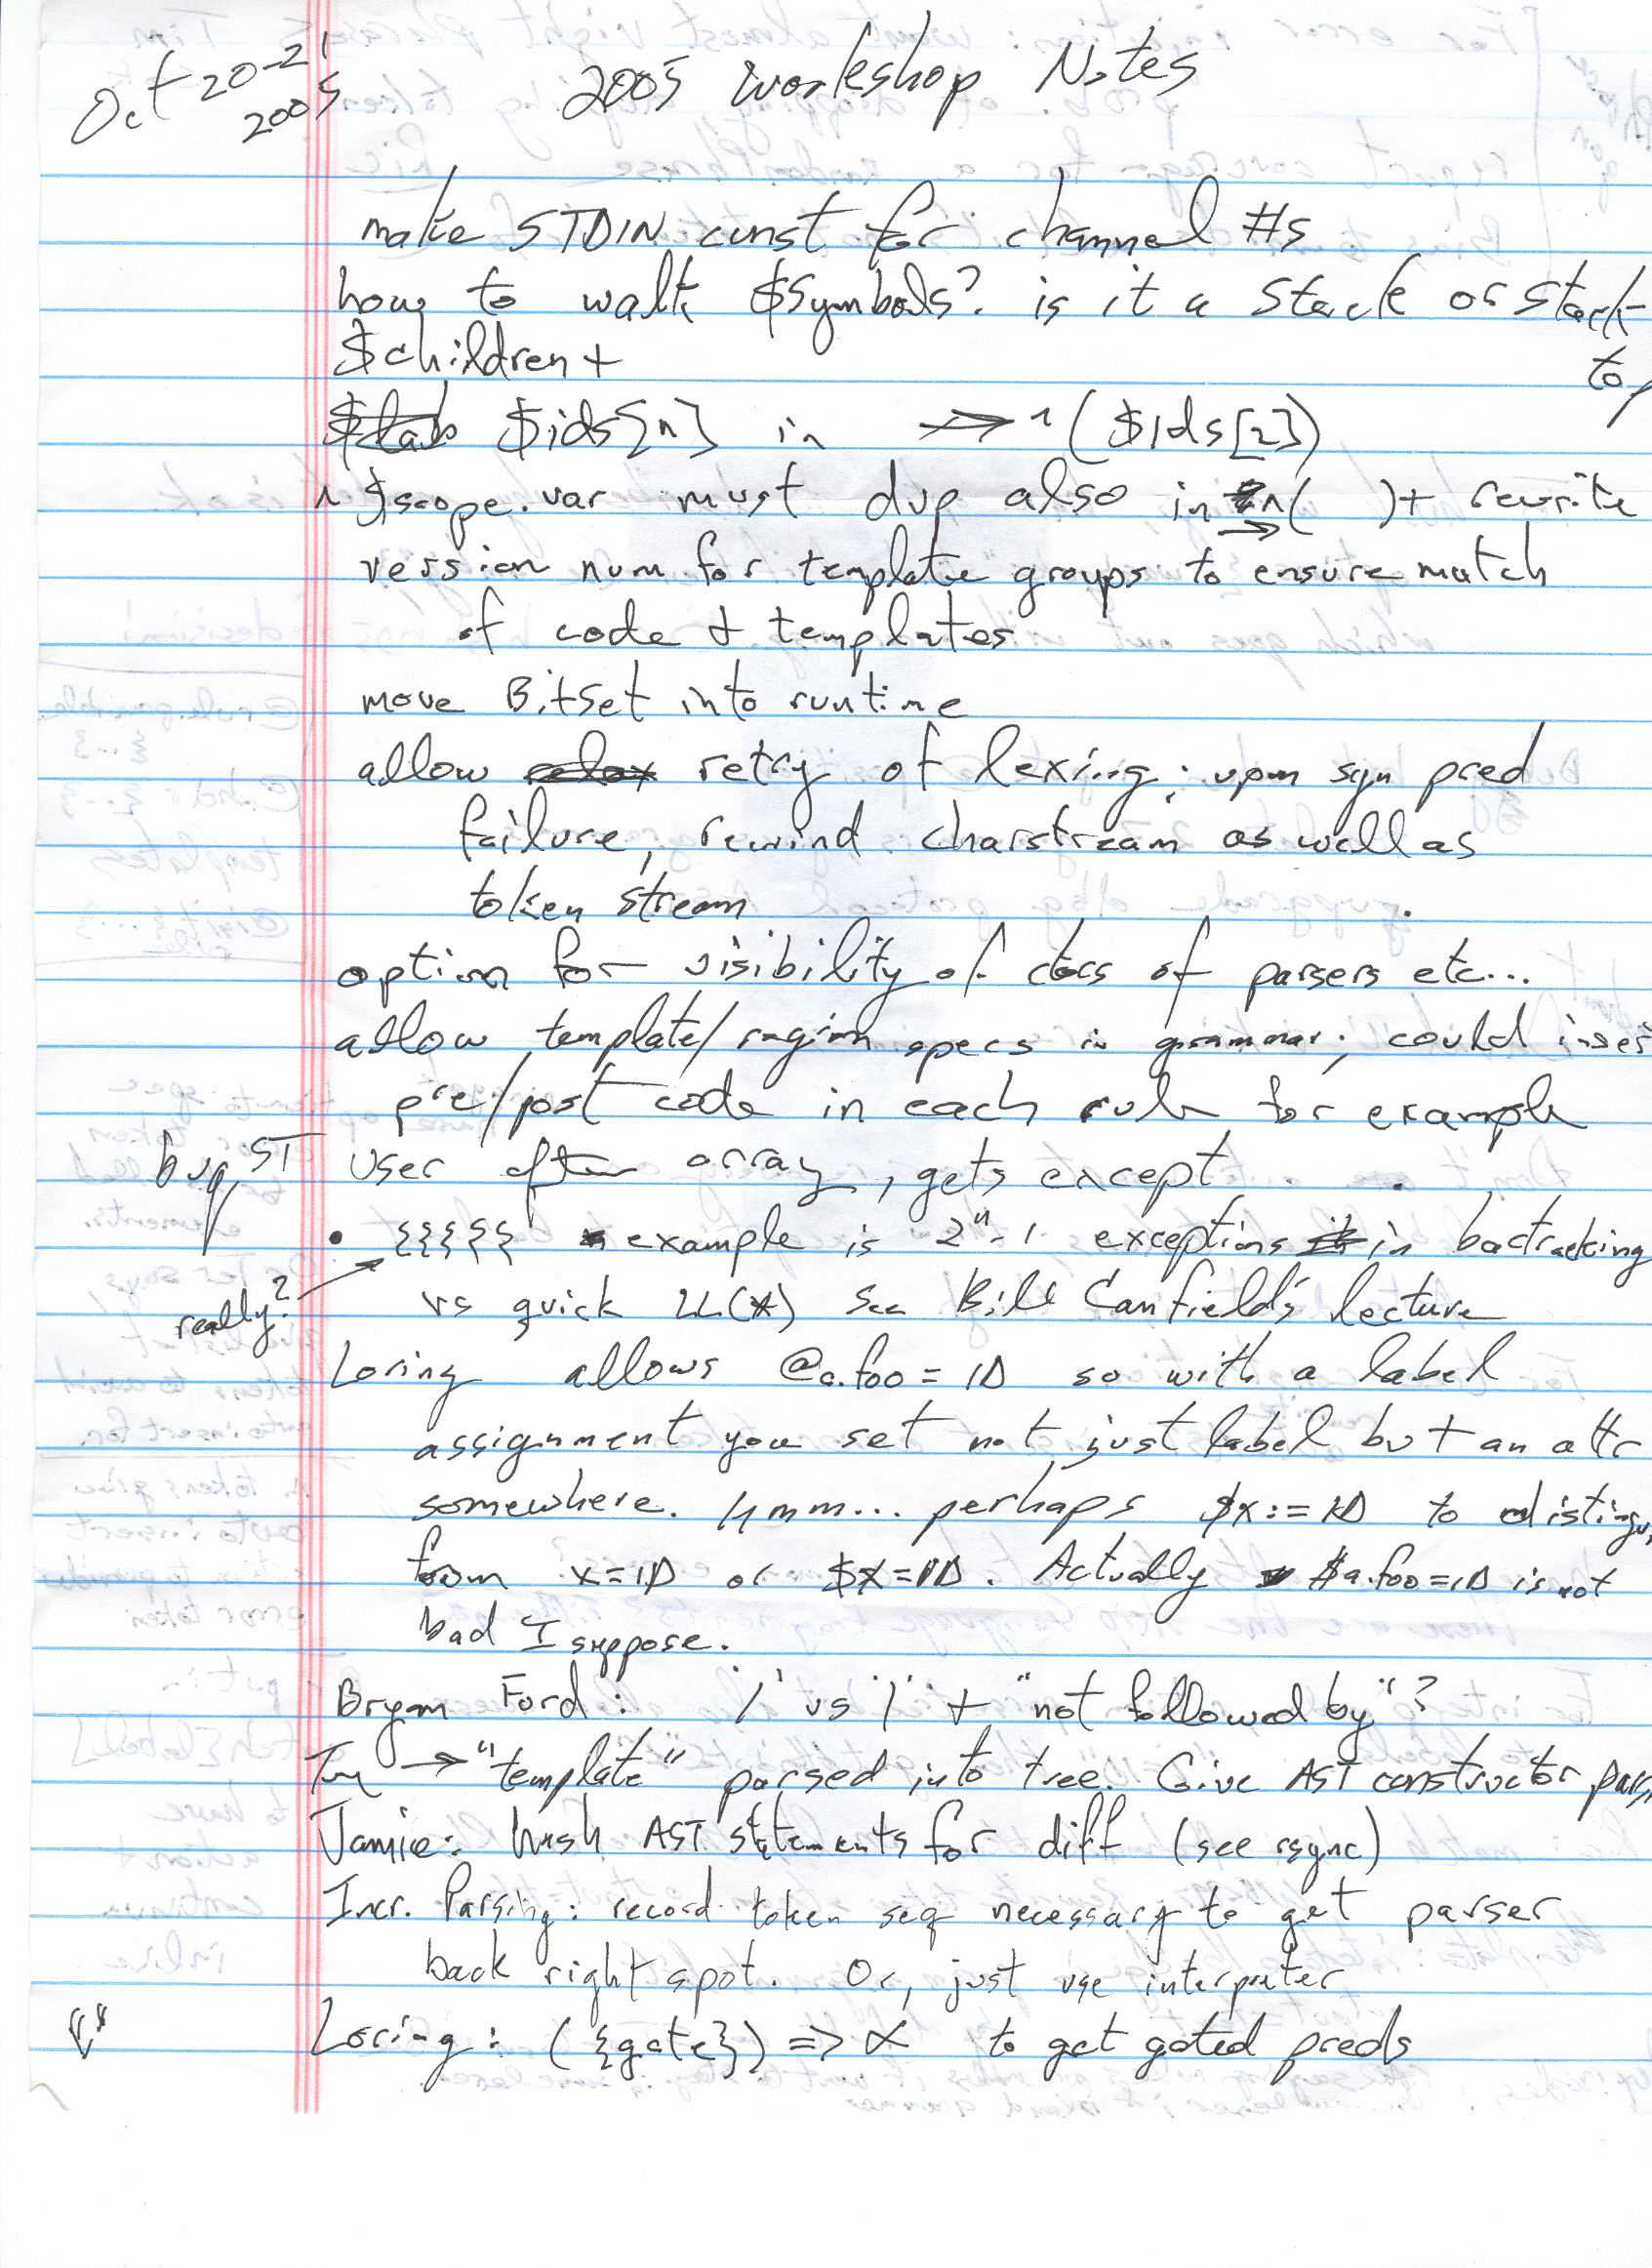 Oct 20-21
2005
2005 Workshop Notes
make STDIN const for channel #s
how to walk $symbols? is it a stack or stack
$children + to
$ids[n] in → ^($ids[2])
$scope.var must dup also in → ^( )+ rewrite
version num for template groups to ensure match
of code + templates
move BitSet into runtime
allow retry of lexing; upon syn pred
failure, rewind charstream as well as
token stream
option for visibility of of parsers etc...
allow template/region specs in grammar; could
pre/post code in each rule for example
bug, ST user after array, gets except
• {{{{{ example is 2^n-1 exceptions in bactracking
really? vs quick LL(*) see Bill Canfield's lecture
Loring allows @a.foo=ID so with a label
assignment you set not just label but an attr
somewhere. Hmm... perhaps $x:=ID to
from x=ID or $x=ID. Actually $a.foo=ID is not
bad I suppose.
Bryan Ford: '/' vs '|' + "not followed by"?
→ "template" parsed into tree. Give AST constructor
Jamie: hash AST statements for diff (see rsync)
Incr. Parsing: record token seq necessary to get parser
back right spot. Or, just use interpreter
Loring: ({gate}) => α to get gated preds